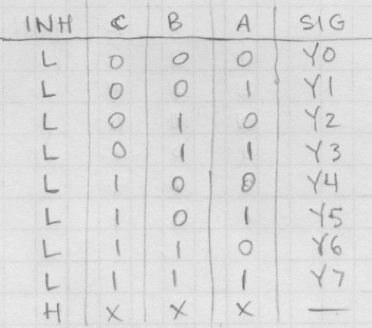 INH C B A SIG
L 0 0 0 Y0
L 0 0 1 Y1
L 0 1 0 Y2
L 0 1 1 Y3
L 1 0 0 Y4
L 1 0 1 Y5
L 1 1 0 Y6
L 1 1 1 Y7
H X X X —